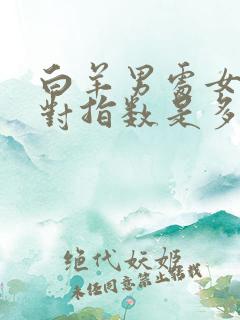 白羊男處女
對指数是多
绝代妖姬
未经同意禁止转载